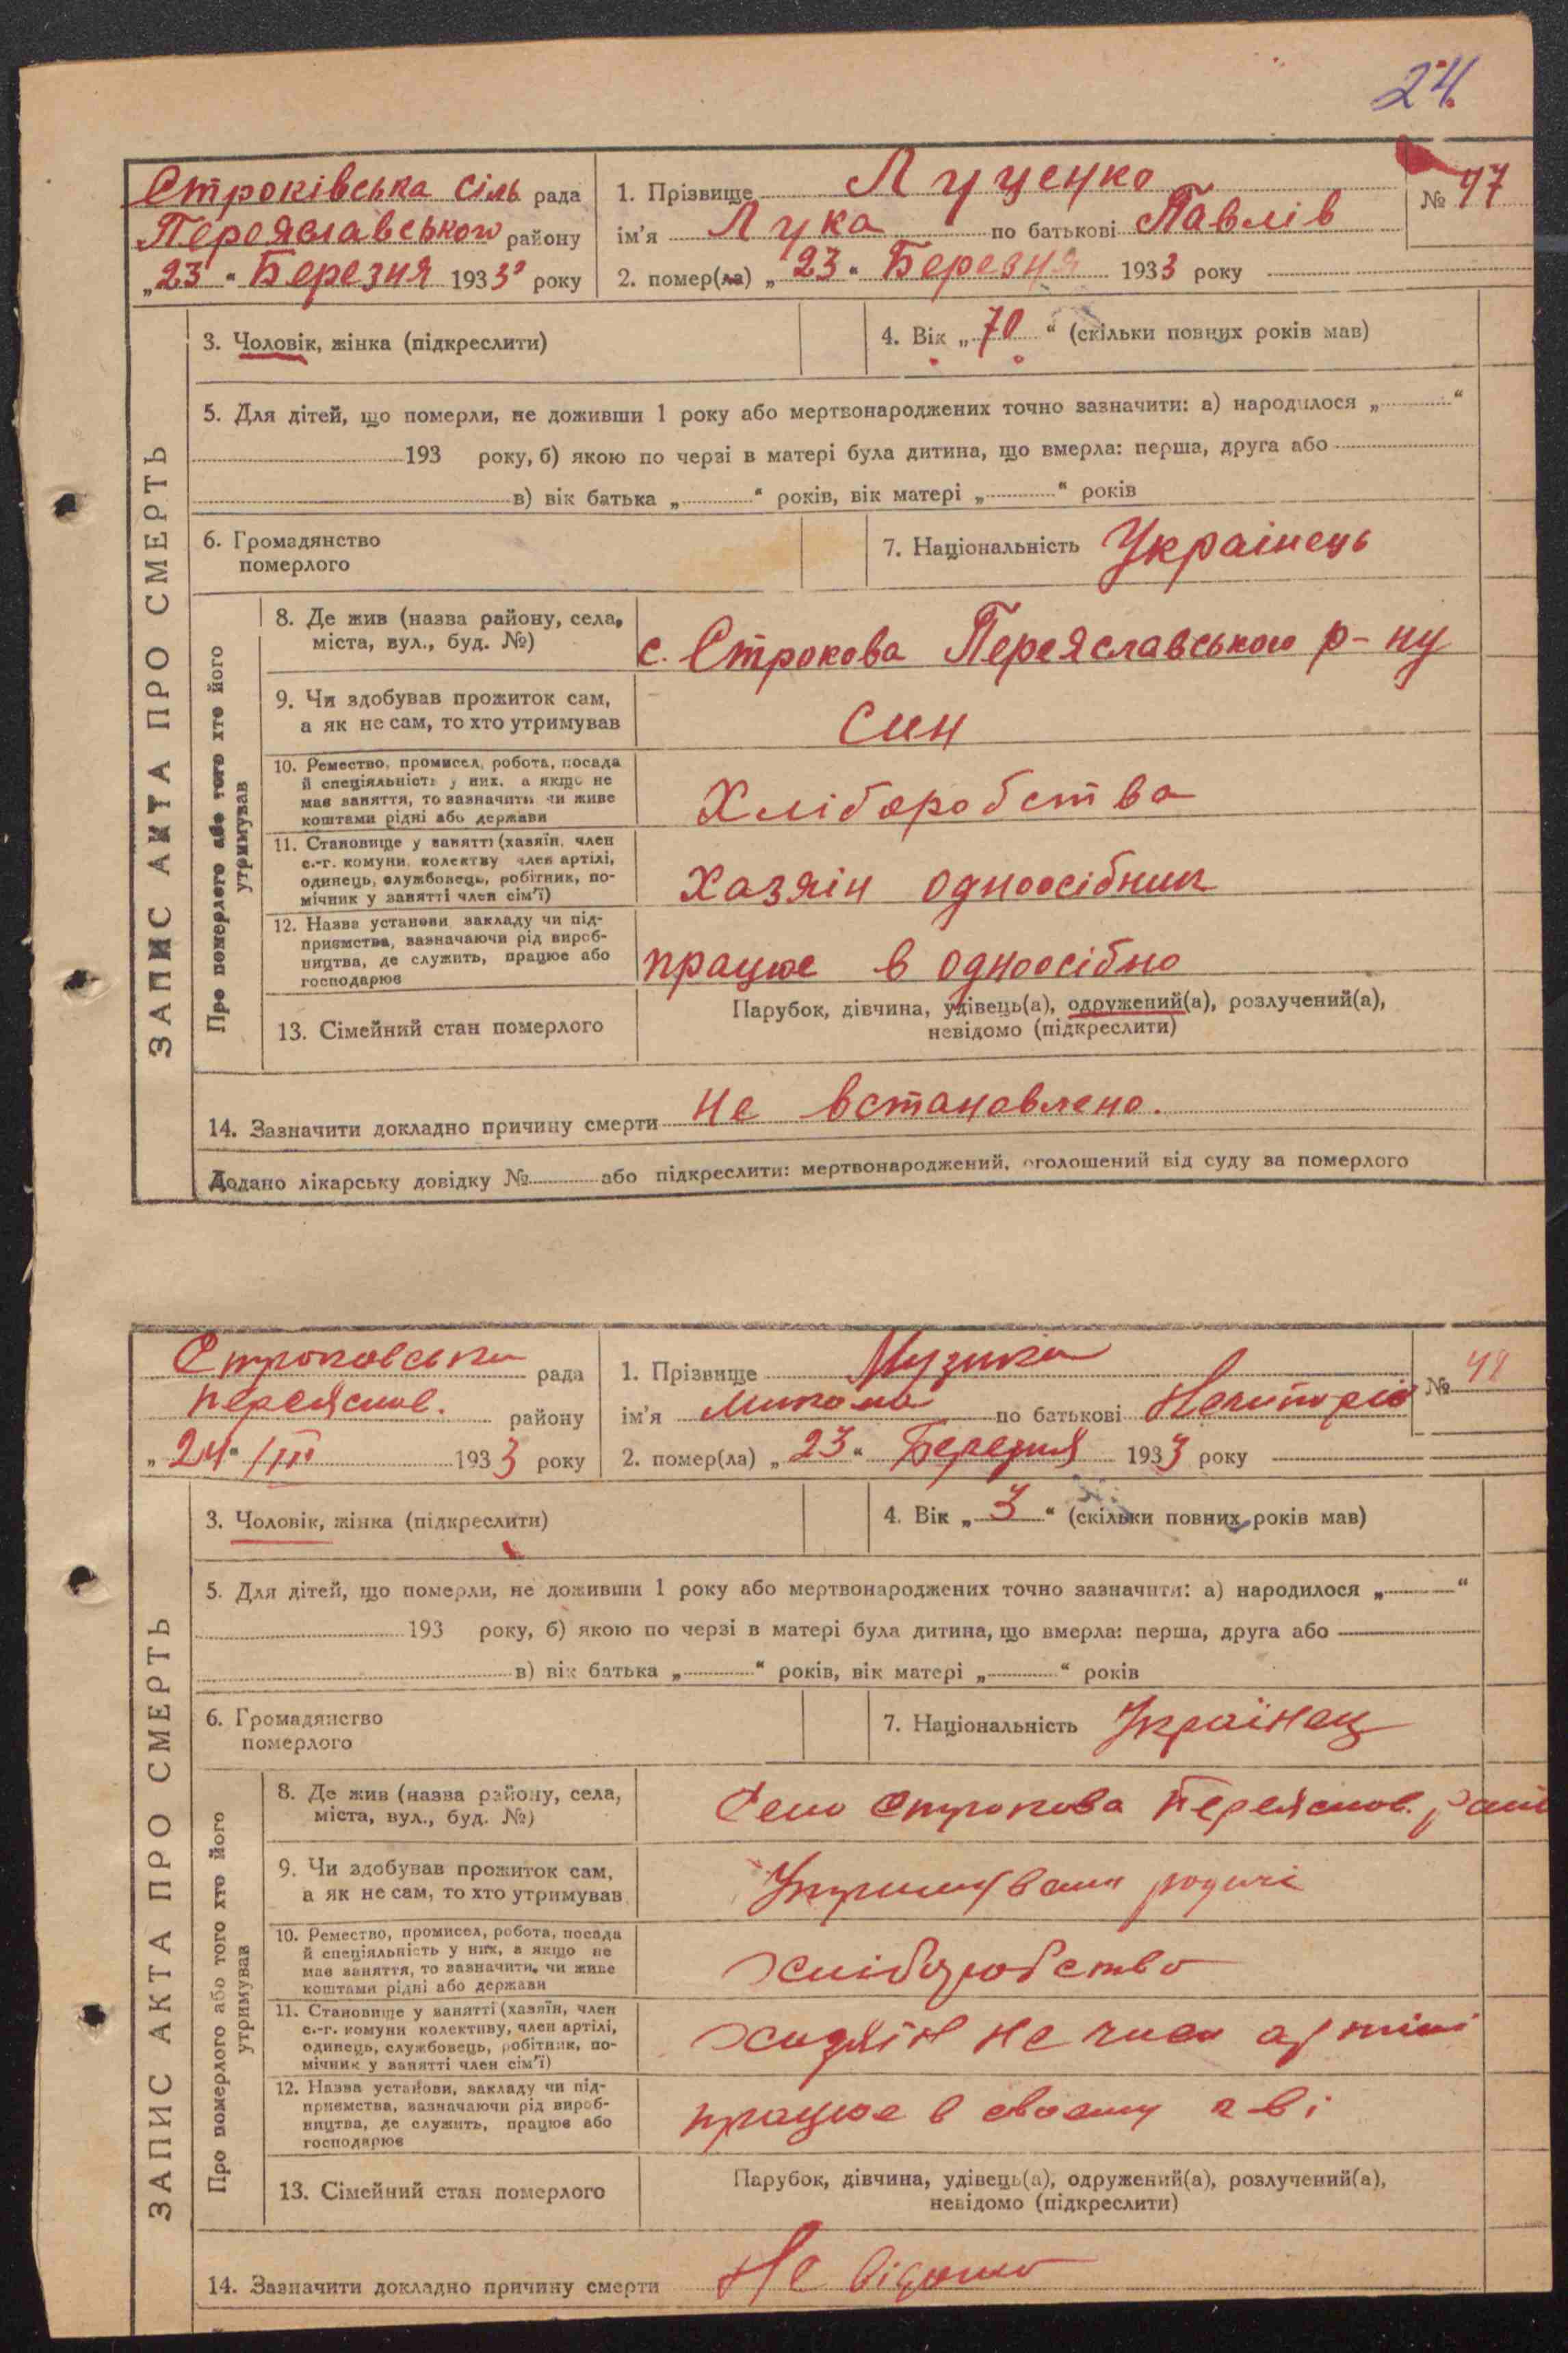 24
Строківська сіль рада
Переяславського району
„23“ Березня 1933 року
1. Прізвище Луценко
ім'я Лука по батькові Павлів
2. помер(ла) „23“ Березня 1933 року
№ 47
ЗАПИС АКТА ПРО СМЕРТЬ
3. Чоловік, жінка (підкреслити)
4. Вік „70“ (скільки повних років мав)
5. Для дітей, що померли, не доживши 1 року або мертвонароджених точно зазначити: а) народилося „ “
193 року, б) якою по черзі в матері була дитина, що вмерла: перша, друга або
в) вік батька „ “ років, вік матері „ “ років
6. Громадянство
померлого
7. Національність Українець
Про померлого або того хто його
утримував
8. Де жив (назва району, села,
міста, вул., буд. №)
с. Строкова Переяславського р-ну
9. Чи здобував прожиток сам,
а як не сам, то хто утримував
син
10. Ремество, промисел, робота, посада
й спеціяльність у них, а якщо не
має заняття, то зазначити чи живе
коштами рідні або держави
Хліборобства
11. Становище у занятті (хазяїн, член
с.-г. комуни, колективу член артілі,
одинець, службовець, робітник, по-
мічник у занятті член сім'ї)
Хазяін одноосібник
12. Назва установи закладу чи під-
приємства, зазначаючи рід вироб-
ництва, де служить, працює або
господарює
працює в одноосібно
13. Сімейний стан померлого
Парубок, дівчина, удівець(а), одружений(а), розлучений(а),
невідомо (підкреслити)
14. Зазначити докладно причину смерти не встановлено.
Додано лікарську довідку № або підкреслити: мертвонароджений, оголошений від суду за померлого
Строковська рада
Переяслав. району
„24“ /III 1933 року
1. Прізвище Музика
ім'я Микола по батькові Нечипорів
2. помер(ла) „23“ Березня 1933 року
№ 48
ЗАПИС АКТА ПРО СМЕРТЬ
3. Чоловік, жінка (підкреслити)
4. Вік „3“ (скільки повних років мав)
5. Для дітей, що померли, не доживши 1 року або мертвонароджених точно зазначити: а) народилося „ “
193 року, б) якою по черзі в матері була дитина, що вмерла: перша, друга або
в) вік батька „ “ років, вік матері „ “ років
6. Громадянство
померлого
7. Національність Українец
Про померлого або того хто його
утримував
8. Де жив (назва району, села,
міста, вул., буд. №)
Село Строкова Переяслов.
9. Чи здобував прожиток сам,
а як не сам, то хто утримував
10. Ремество, промисел, робота, посада
й спеціяльність у них, а якщо не
має заняття, то зазначити, чи живе
коштами рідні або держави
хліборобство
11. Становище у занятті (хазяїн, член
с.-г. комуни колективу, член артілі,
одинець, службовець, робітник, по-
мічник у занятті член сім'ї)
хазяін не член артілі
12. Назва установи, закладу чи під-
приємства, зазначаючи рід вироб-
ництва, де служить, працює або
господарює
працює в своему
13. Сімейний стан померлого
Парубок, дівчина, удівець(а), одружений(а), розлучений(а),
невідомо (підкреслити)
14. Зазначити докладно причину смерти Не відомо